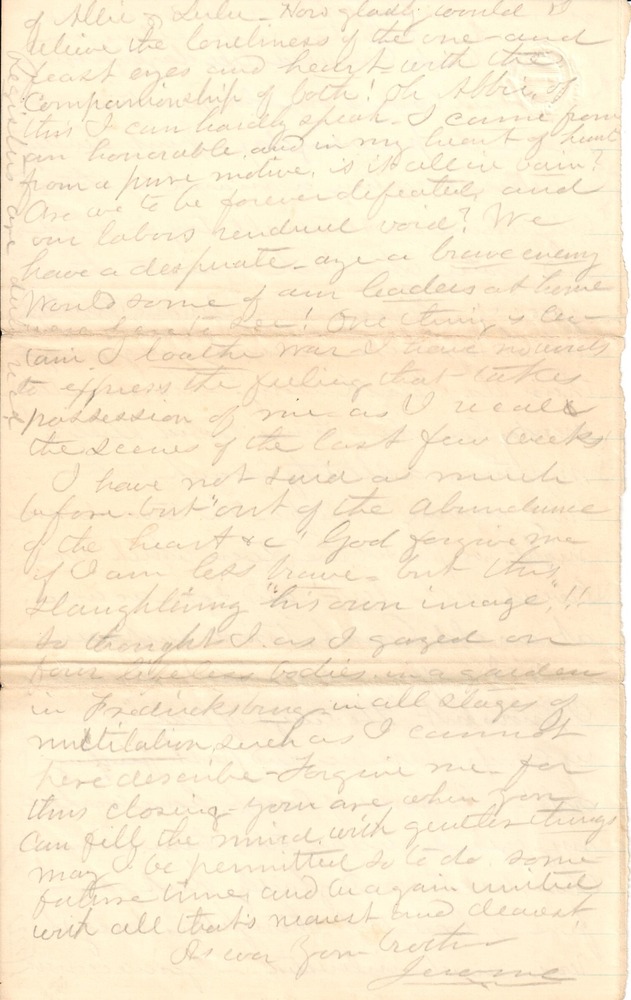 of Allie & Lulu - How gladly would I
relieve the loneliness of the one - and
feast eyes and heart with the
Companionship of both! Oh Abbie, of
this I can hardly speak - I came from
an honorable, and in my heart of heart
from a pure motive, is it all in vain?
Are we to be forever defeated, and
our labors rendered void? We
have a desperate - aye a brave enemy
Would some of our leaders at home
see! One thing is cer-
tain I loathe war I have no words
to express the feeling that takes
possession of me as I recall
the scenes of the last few weeks
I have not said as much
before - but "out of the abundance
of the heart &c" God forgive me
if I am less brave - but this
slaughtering "his own image"!!
So thought I as I gazed on
four lifeless bodies in a garden
in Fredericksburg - in all stages of
mutilation, such as I cannot
here describe - Forgive me - for
thus closing - your are, when you
can fill the mind with gentler things
may I be permitted so to do some
future time, and be again united
with all that's nearest and dearest
As ever your brother
Jerome